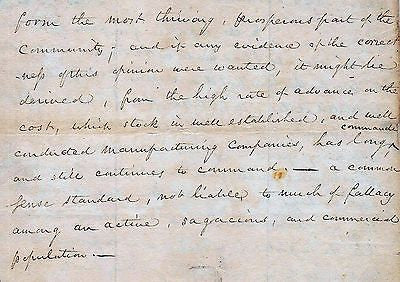 form the most thriving, prosperous part of the
Community; and if any evidence of the correct-
ness of this opinion were wanted, it might be
derived, from the high rate of advance on the
cost, which stock in well established, and well
commanded
conducted manufacturing companies, has long,
and still continues to command — a common
sense standard, not liable to much of fallacy
among an active, sagacious, and commercial
population. —